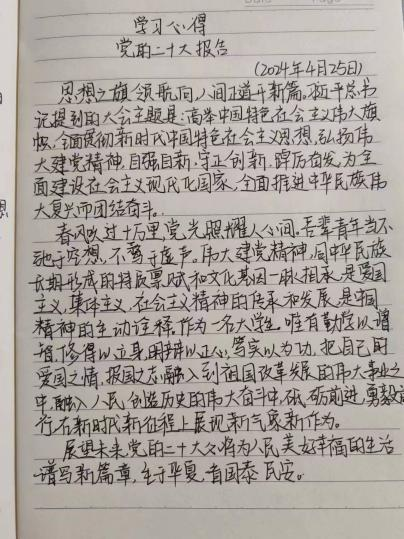 学习心得
党的二十大报告
(2024年4月25日)
思想之旗领航向,人间正道开新篇。习近平总书
记提到的大会主题是:高举中国特色社会主义伟大旗
帜,全面贯彻新时代中国特色社会主义思想,弘扬伟
大建党精神,自强自新、守正创新,踔厉奋发,为全
面建设社会主义现代化国家,全面推进中华民族伟
大复兴而团结奋斗。
春风吹过十万里,党光照耀人心间。吾辈青年当不
驰于空想,不骛于虚声。伟大建党精神,同中华民族
长期形成的特质禀赋和文化基因一脉相承,是爱国
主义,集体主义,社会主义精神的传承和发展,是中国
精神的生动诠释。作为一名大学生,唯有勤学以增
智,修得以立身,明辨以正心,笃实以为功,把自己的
爱国之情、报国之志融入到祖国改革发展的伟大事业之
中,融入人民创造历史的伟大奋斗中,砥砺前进,勇毅
行,在新时代新征程上展现新气象新作为。
展望未来,党的二十大必将为人民美好幸福的生活
谱写新篇章,生于华夏,